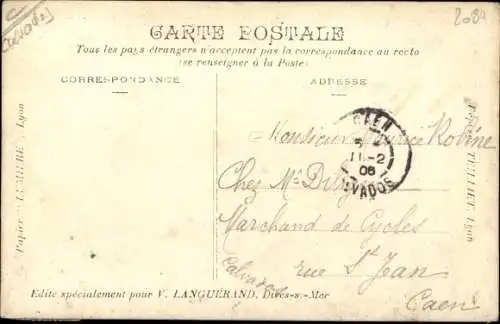 Calvados
2089
CARTE POSTALE
Tous les pays étrangers n'acceptent pas la correspondance au recto
(se renseigner à la Poste)
CORRESPONDANCE
ADRESSE
Papier LUMIERE, Lyon
Lyon
CAEN
11-2
06
CALVADOS
Monsieur Maurice Robine
Chez Mr
Marchand de Cycles
rue St Jean
Calvados
Caen
Edité spécialement pour V. LANGUÉRAND, Dives-s-Mer